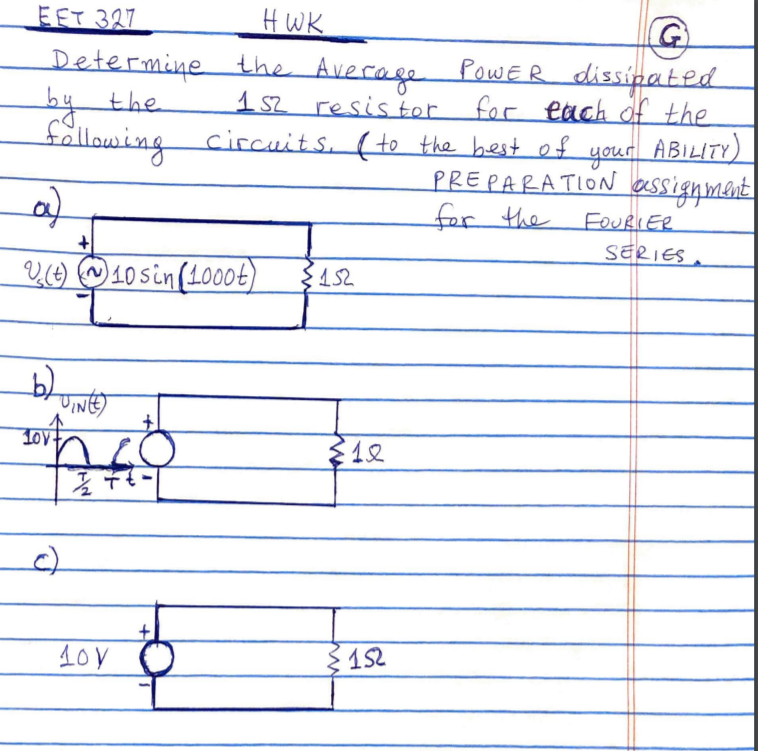 EET 327 HWK
G
Determine the Average POWER dissipated
by the 1Ω resistor for each of the
following circuits. (to the best of your ABILITY)
PREPARATION assignment
for the FOURIER
SERIES.
a)
+
Vs(t) ~ 10 sin(1000t) 1Ω
-
b)
VIN(t)
10V + 1Ω
T/2 T t -
c)
+
10V 1Ω
-